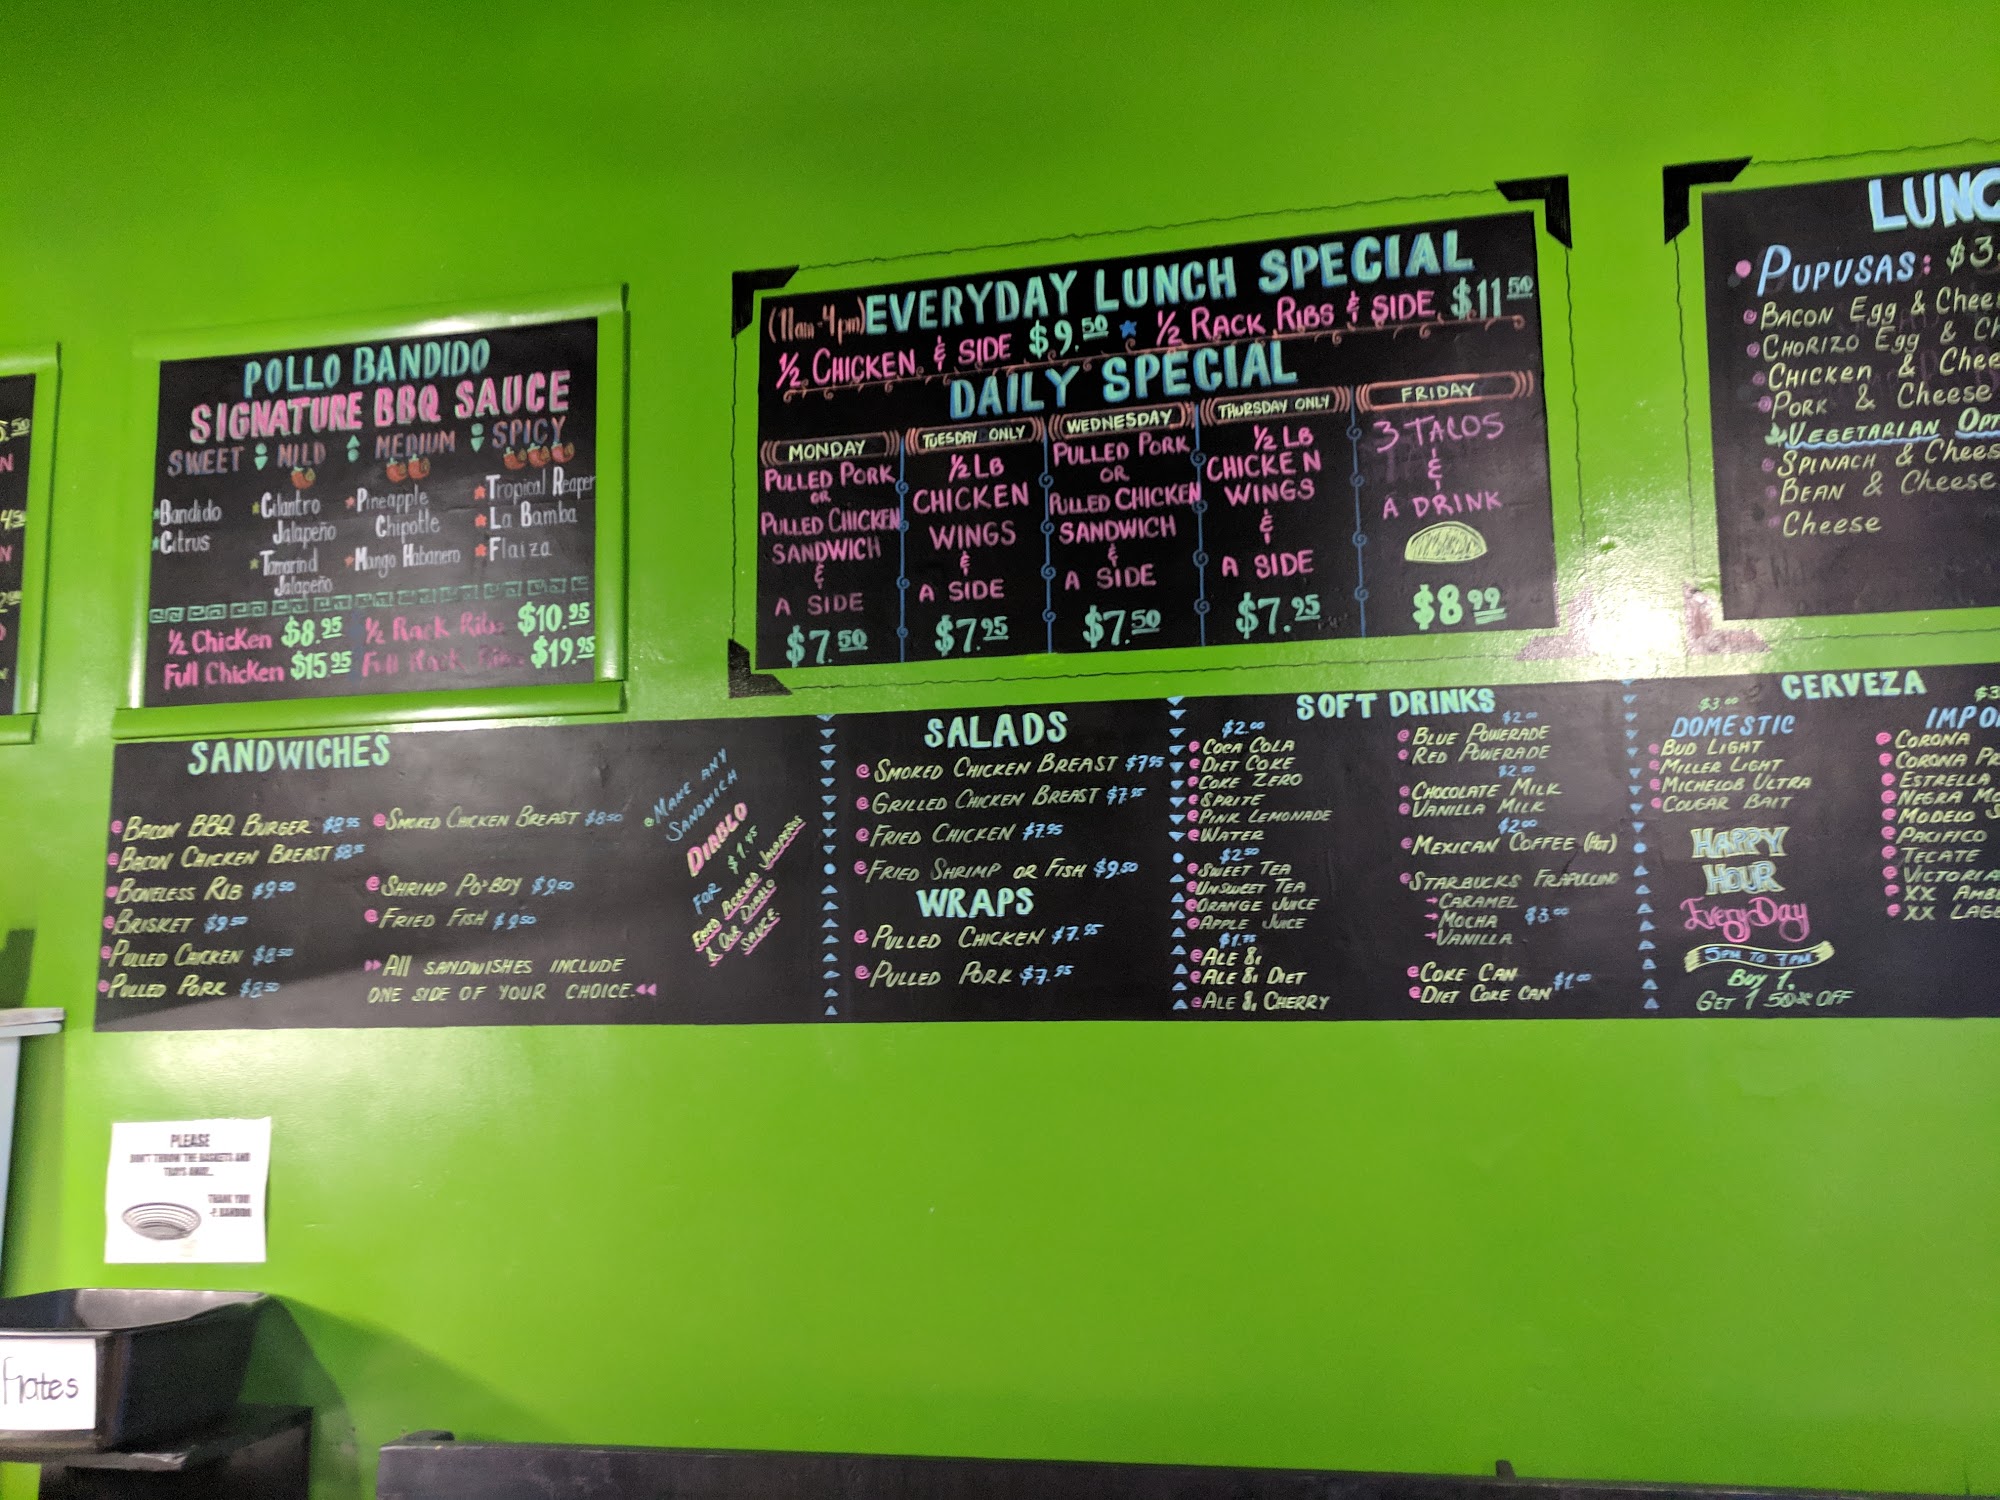 POLLO BANDIDO
SIGNATURE BBQ SAUCE
SWEET MILD MEDIUM SPICY
Bandido
Citrus
Cilantro
Jalapeño
Tamarind
Jalapeño
Pineapple
Chipotle
Mango Habanero
Tropical Reaper
La Bamba
Flaiza
1/2 Chicken $8.95 1/2 Rack Ribs $10.95
Full Chicken $15.95 Full Rack Ribs $19.95
(11am-4pm) EVERYDAY LUNCH SPECIAL
1/2 CHICKEN & SIDE $9.50 ★ 1/2 RACK RIBS & SIDE $11.50
DAILY SPECIAL
MONDAY
PULLED PORK
OR
PULLED CHICKEN
SANDWICH
&
A SIDE
$7.50
TUESDAY ONLY
1/2 LB
CHICKEN
WINGS
&
A SIDE
$7.95
WEDNESDAY
PULLED PORK
OR
PULLED CHICKEN
SANDWICH
&
A SIDE
$7.50
THURSDAY ONLY
1/2 LB
CHICKEN
WINGS
&
A SIDE
$7.95
FRIDAY
3 TACOS
&
A DRINK
$8.99
LUNC
PUPUSAS: $3.
BACON EGG & Chee
CHORIZO Egg & Ch
CHICKEN & Chee
PORK & Cheese
VEGETARIAN OPT
SPINACH & Chees
BEAN & Cheese
Cheese
SANDWICHES
BACON BBQ BURGER $8.95
BACON CHICKEN BREAST $8.95
BONELESS RIB $9.50
BRISKET $9.50
PULLED CHICKEN $8.50
PULLED PORK $8.50
SMOKED CHICKEN BREAST $8.50
SHRIMP PO'BOY $9.50
FRIED FISH $9.50
ALL SANDWISHES INCLUDE
ONE SIDE OF YOUR CHOICE.
MAKE ANY
SANDWICH
DIABLO
FOR $1.45
FRIED PICKLED JALAPEÑOS
& OUR DIABLO
SAUCE.
SALADS
SMOKED CHICKEN BREAST $7.95
GRILLED CHICKEN BREAST $7.95
FRIED CHICKEN $7.95
FRIED SHRIMP OR FISH $9.50
WRAPS
PULLED CHICKEN $7.95
PULLED PORK $7.95
SOFT DRINKS
$2.00
COCA COLA
DIET COKE
COKE ZERO
SPRITE
PINK LEMONADE
WATER
$2.50
SWEET TEA
UNSWEET TEA
ORANGE JUICE
APPLE JUICE
$1.75
ALE 81
ALE 81 DIET
ALE 81 CHERRY
$2.00
BLUE POWERADE
RED POWERADE
$2.50
CHOCOLATE MILK
VANILLA MILK
$2.00
MEXICAN COFFEE (HOT)
STARBUCKS FRAPUCCINO
CARAMEL
MOCHA $3.00
VANILLA
COKE CAN
DIET COKE CAN $1.00
CERVEZA
$3.00
DOMESTIC
BUD LIGHT
MILLER LIGHT
MICHELOB ULTRA
COUGAR BAIT
HAPPY
HOUR
EveryDay
5PM TO 7PM
Buy 1,
GET 1 50% OFF
$3
IMPO
CORONA
CORONA PR
ESTRELLA
NEGRA MO
MODELO S
PACIFICO
TECATE
VICTORIA
XX AMB
XX LAGE
PLEASE
DON'T THROW THE BASKETS AND
TRAYS AWAY...
THANK YOU